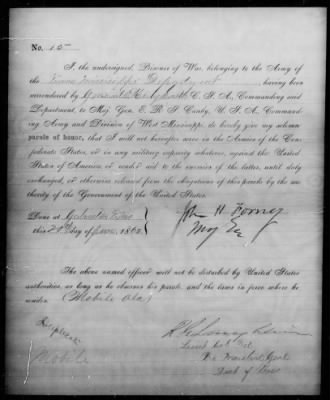 No. 15
I the undersigned, Prisoner of War, belonging to the Army of the
Trans Mississippi Department having been
surrendered by General E. Kirby Smith C. S. A., Commanding said
Department, to Maj. Gen. E. R. S. Canby, U. S. A., Command-
ing Army and Division of West Mississippi, do hereby give my solemn
parole of honor, that I will not hereafter serve in the Armies of the Con-
federate States, or in any military capacity whatever, against the United
States of America, or render aid to the enemies of the latter, until duly
exchanged, or otherwise released from the obligations of this parole by the au-
thority of the Government of the United States.
John H Forney
Done at Galveston Texas
Maj Gen
this 20th day of June, 1865.
The above named officer will not be disturbed by United States
authorities, as long as he observes his parole, and the laws in force where he
resides. (Mobile Ala)
Lieut Col
Mobile
Pro Marshal Genl